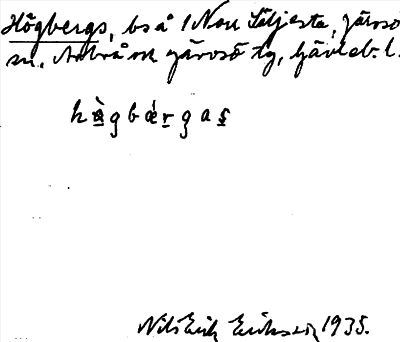 Högbergs, bs å 1 Norr Säljesta, Järvsö
sn. Arbrå ock Järvsö tg, Gävleb. l.
hàgbǽrgas
Nils Erik Eriksson 1935.